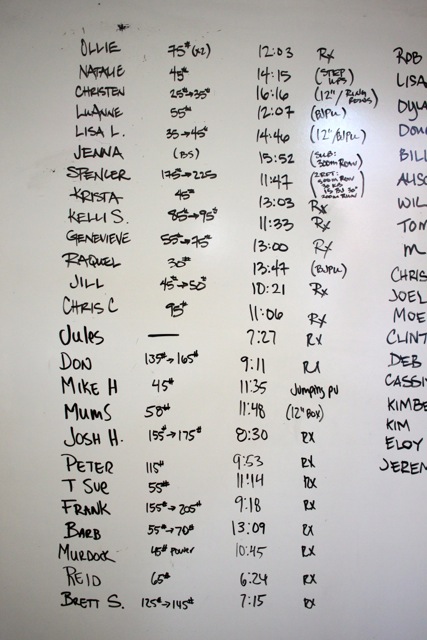 OLLIE 75# (x2) 12:03 Rx
NATALIE 45# 14:15 (STEP UPS)
CHRISTEN 25#→35# 16:16 (12"/RING ROWS)
LUANNE 55# 12:07 (B/PU)
LISA L. 35→45# 14:46 (12"/B/PU)
JENNA (BS) 15:52 (SUB: 300m ROW)
SPENCER 175#→225 11:47
KRISTA 45# 13:03 Rx
KELLI S. 85#→95# 11:33 Rx
GENEVIEVE 55#→75# 13:00 Rx
RAQUEL 30# 13:47 (B/PU)
JILL 45#→50# 10:21 Rx
CHRIS C 95# 11:06 Rx
Jules — 7:27 Rx
DON 135#→165# 9:11 RX
MIKE H 45# 11:35 Jumping PU
MUMS 58# 11:48 (12" BOX)
JOSH H. 155#→175# 8:30 RX
PETER 115# 9:53 RX
T SUE 55# 11:14 RX
FRANK 155#→205# 9:18 RX
BARB 55#→70# 13:09 RX
MURDOCK 45# POWER 10:45 RX
REID 65# 6:24 RX
BRETT S. 125#→145# 7:15 RX
ROB
LISA
DYLA
BILL
WIL
TOM
M
CHRIS
JOEL
MOE
CLINT
DEB
CASSI
KIMBE
KIM
ELOY
JEREM